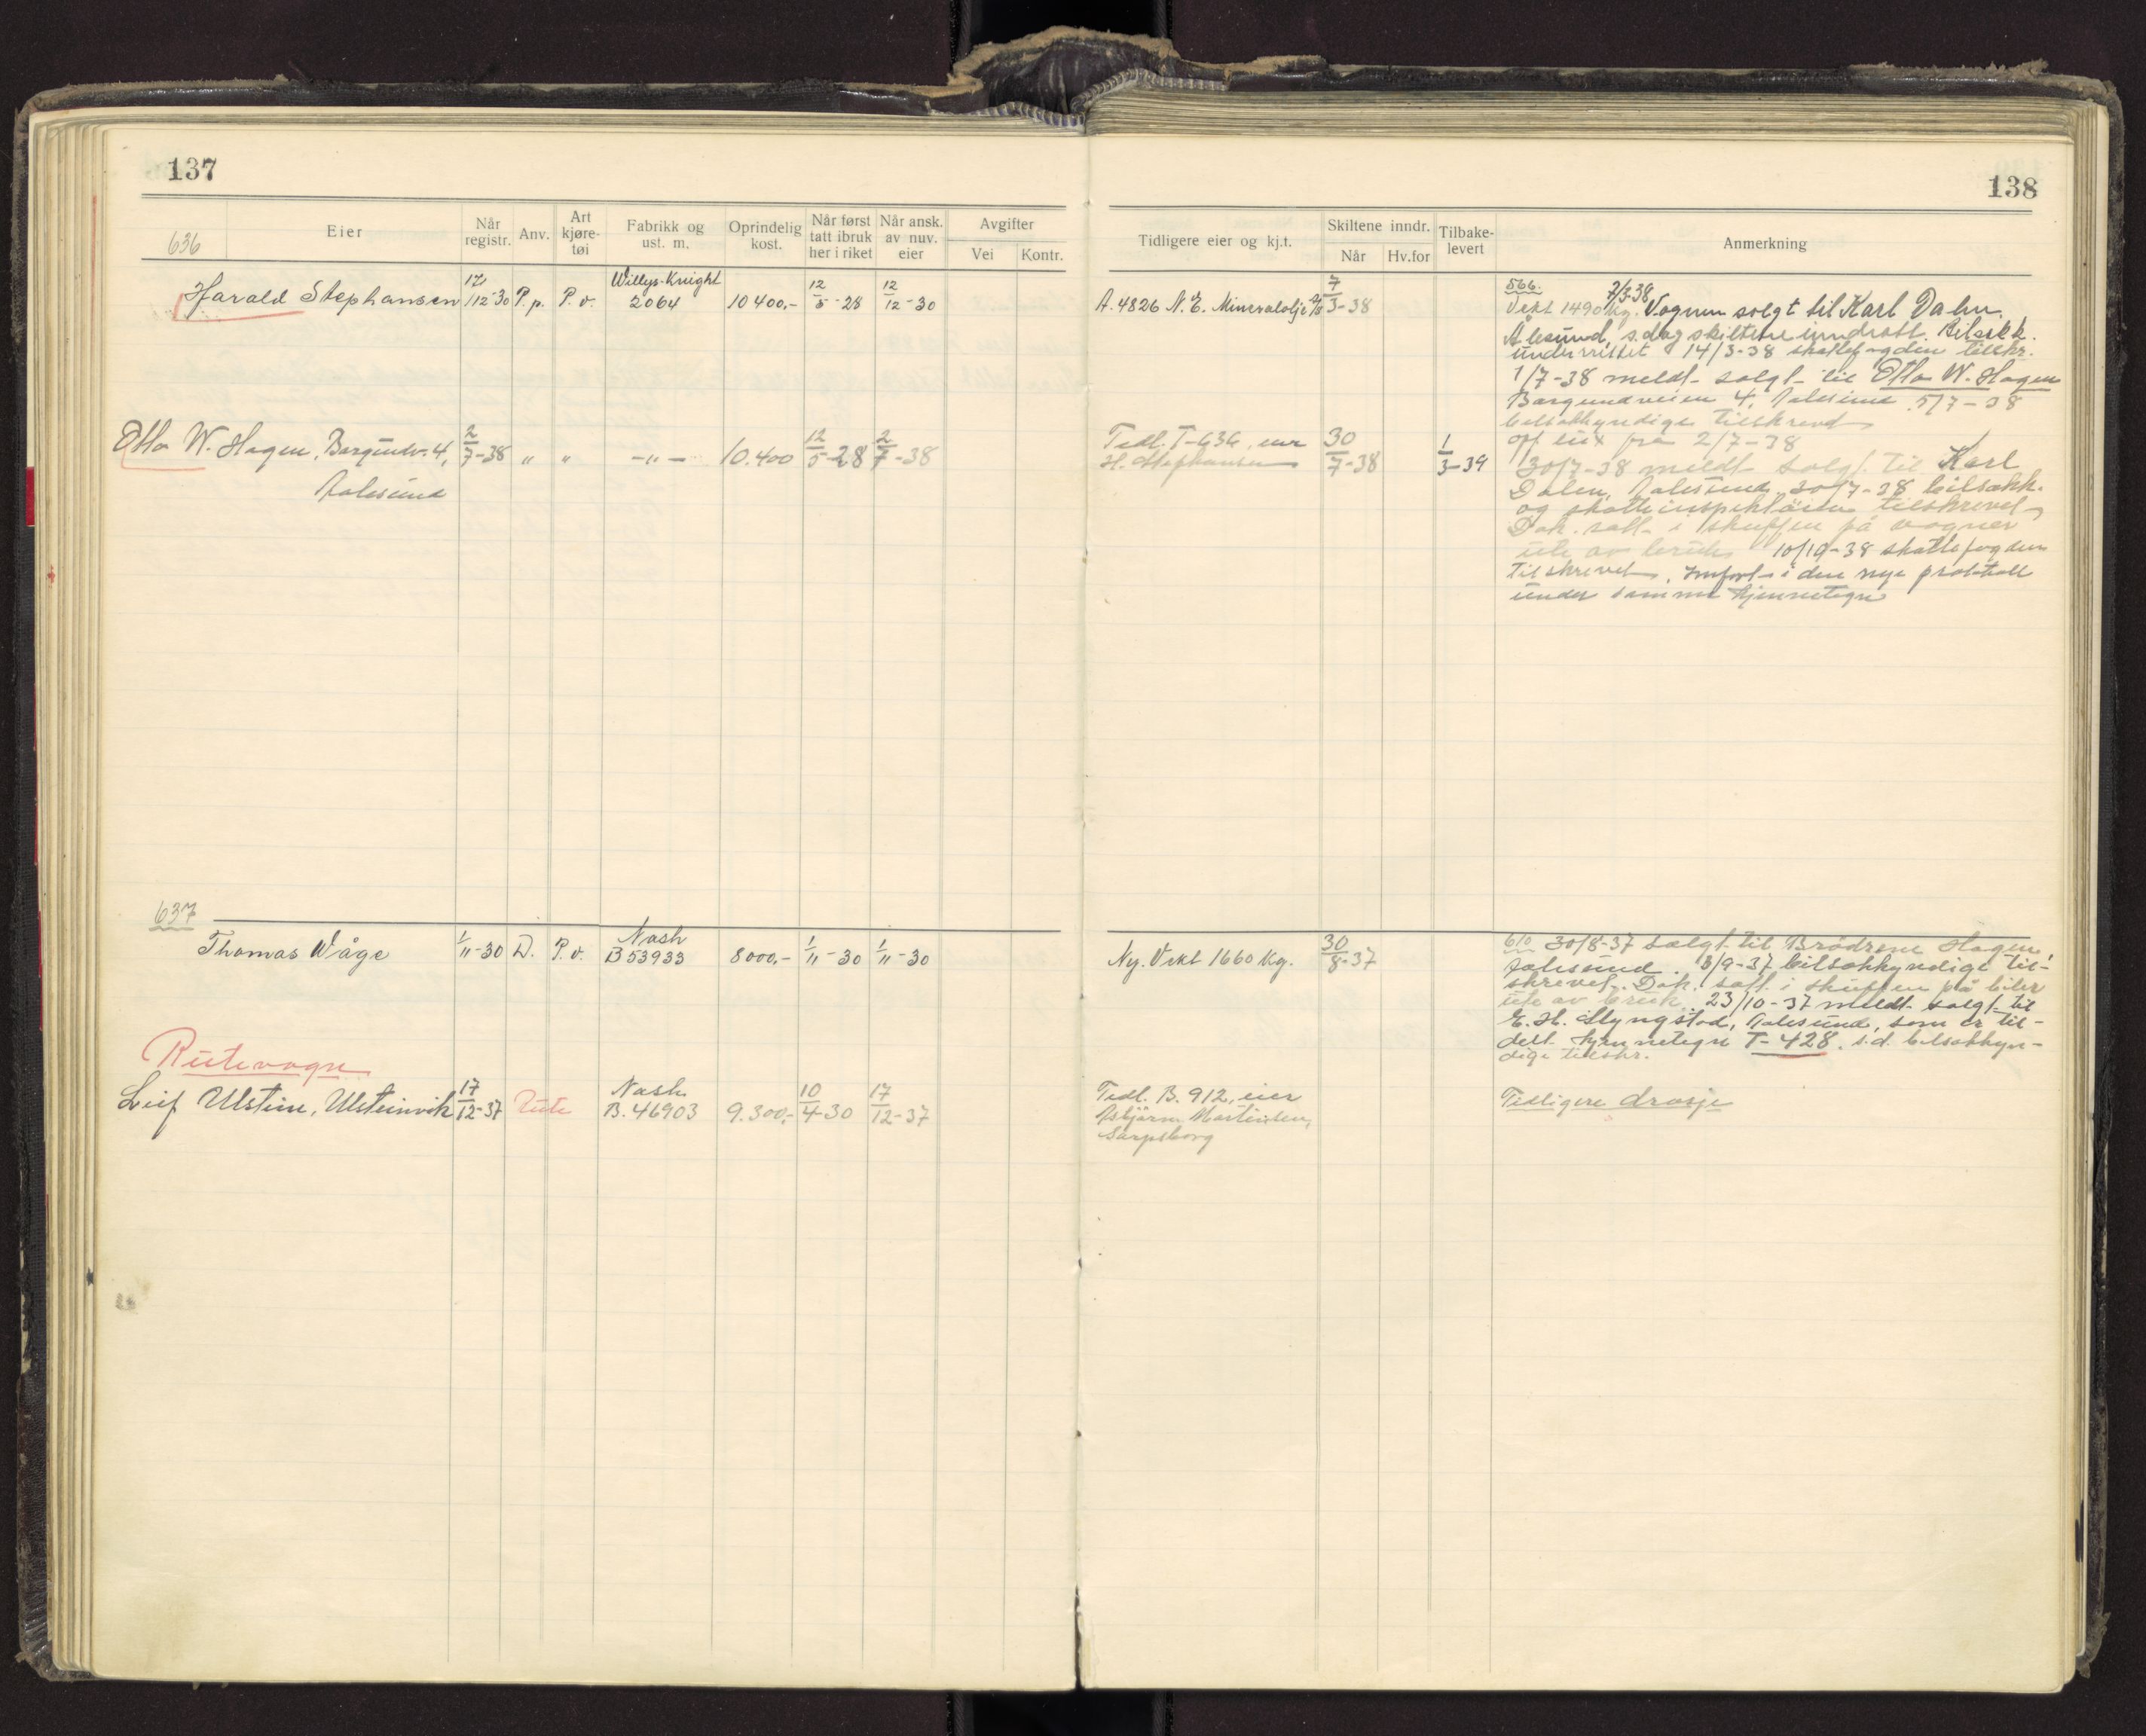 137
636
Eier
Når registr.
Anv.
Art kjøre-tøi
Fabrikk og ust. m.
Oprindelig kost.
Når først tatt ibruk her i riket
Når ansk. av nuv. eier
Avgifter
Vei
Kontr.
Harald Stephansen 12/12-30 P.p. P.v. Willys-Knight 2064 10400,- 12/5-28 12/12-30
Otto W. Hagen, Borgundv. 4, 2/7-38 " " -"- 10.400 12/5-28 2/7-38
Aalesund
637
Thomas Wåge 1/11-30 D. P.v. Nash B53933 8000,- 1/11-30 1/11-30
Rutevogn
Leif Ulstein, Ulsteinvik 17/12-37 Rute Nash B.46903 9.300,- 10/4-30 17/12-37
138
Tidligere eier og kj.t.
Skiltene inndr.
Når
Hv.for
Tilbake-levert
Anmerkning
A.4826 N.E. Mineralolje A/S 7/3-38
566.
Vekt 1490 kg. 7/3-38 Vognen solgt til Karl Dalen.
Ålesund, s.dag skiltene inndratt. Bilsakk.
underrettet 14/3-38 skattefogden tilskr.
1/7-38 meldt solgt til Otto W. Hagen
Borgundveien 4, Aalesund 5/7-38
bilsakkyndige tilskrevet
Tidl. T-636, eier 30/7-38 1/3-39
H. Stephansen
2/7-38
30/7-38 meldt solgt til Karl
Dalen, Aalesund 30/7-38 bilsakk.
og skatteinspektören tilskrevet
Dok. satt i skuffen på vogner
ute av bruk 10/10-38 skattefogden
tilskrevet. Innført i den nye protokoll
under samme kjennetegn
Ny. Vekt 1660 kg. 30/8-37
610 30/8-37 solgt til Brödrene Hagen,
Aalesund. 3/9-37 bilsakkyndige til-
skrevet. Dok. satt i skuffen på biler
ute av bruk 23/10-37 meldt solgt til
E. H. Slyngstad, Aalesund, som er til-
delt kjennetegn T-428. s.d. bilsakkyn-
dige tilskr.
Tidl. B. 912, eier
Asbjörn Martinsen,
Sarpsborg
Tidligere drosje